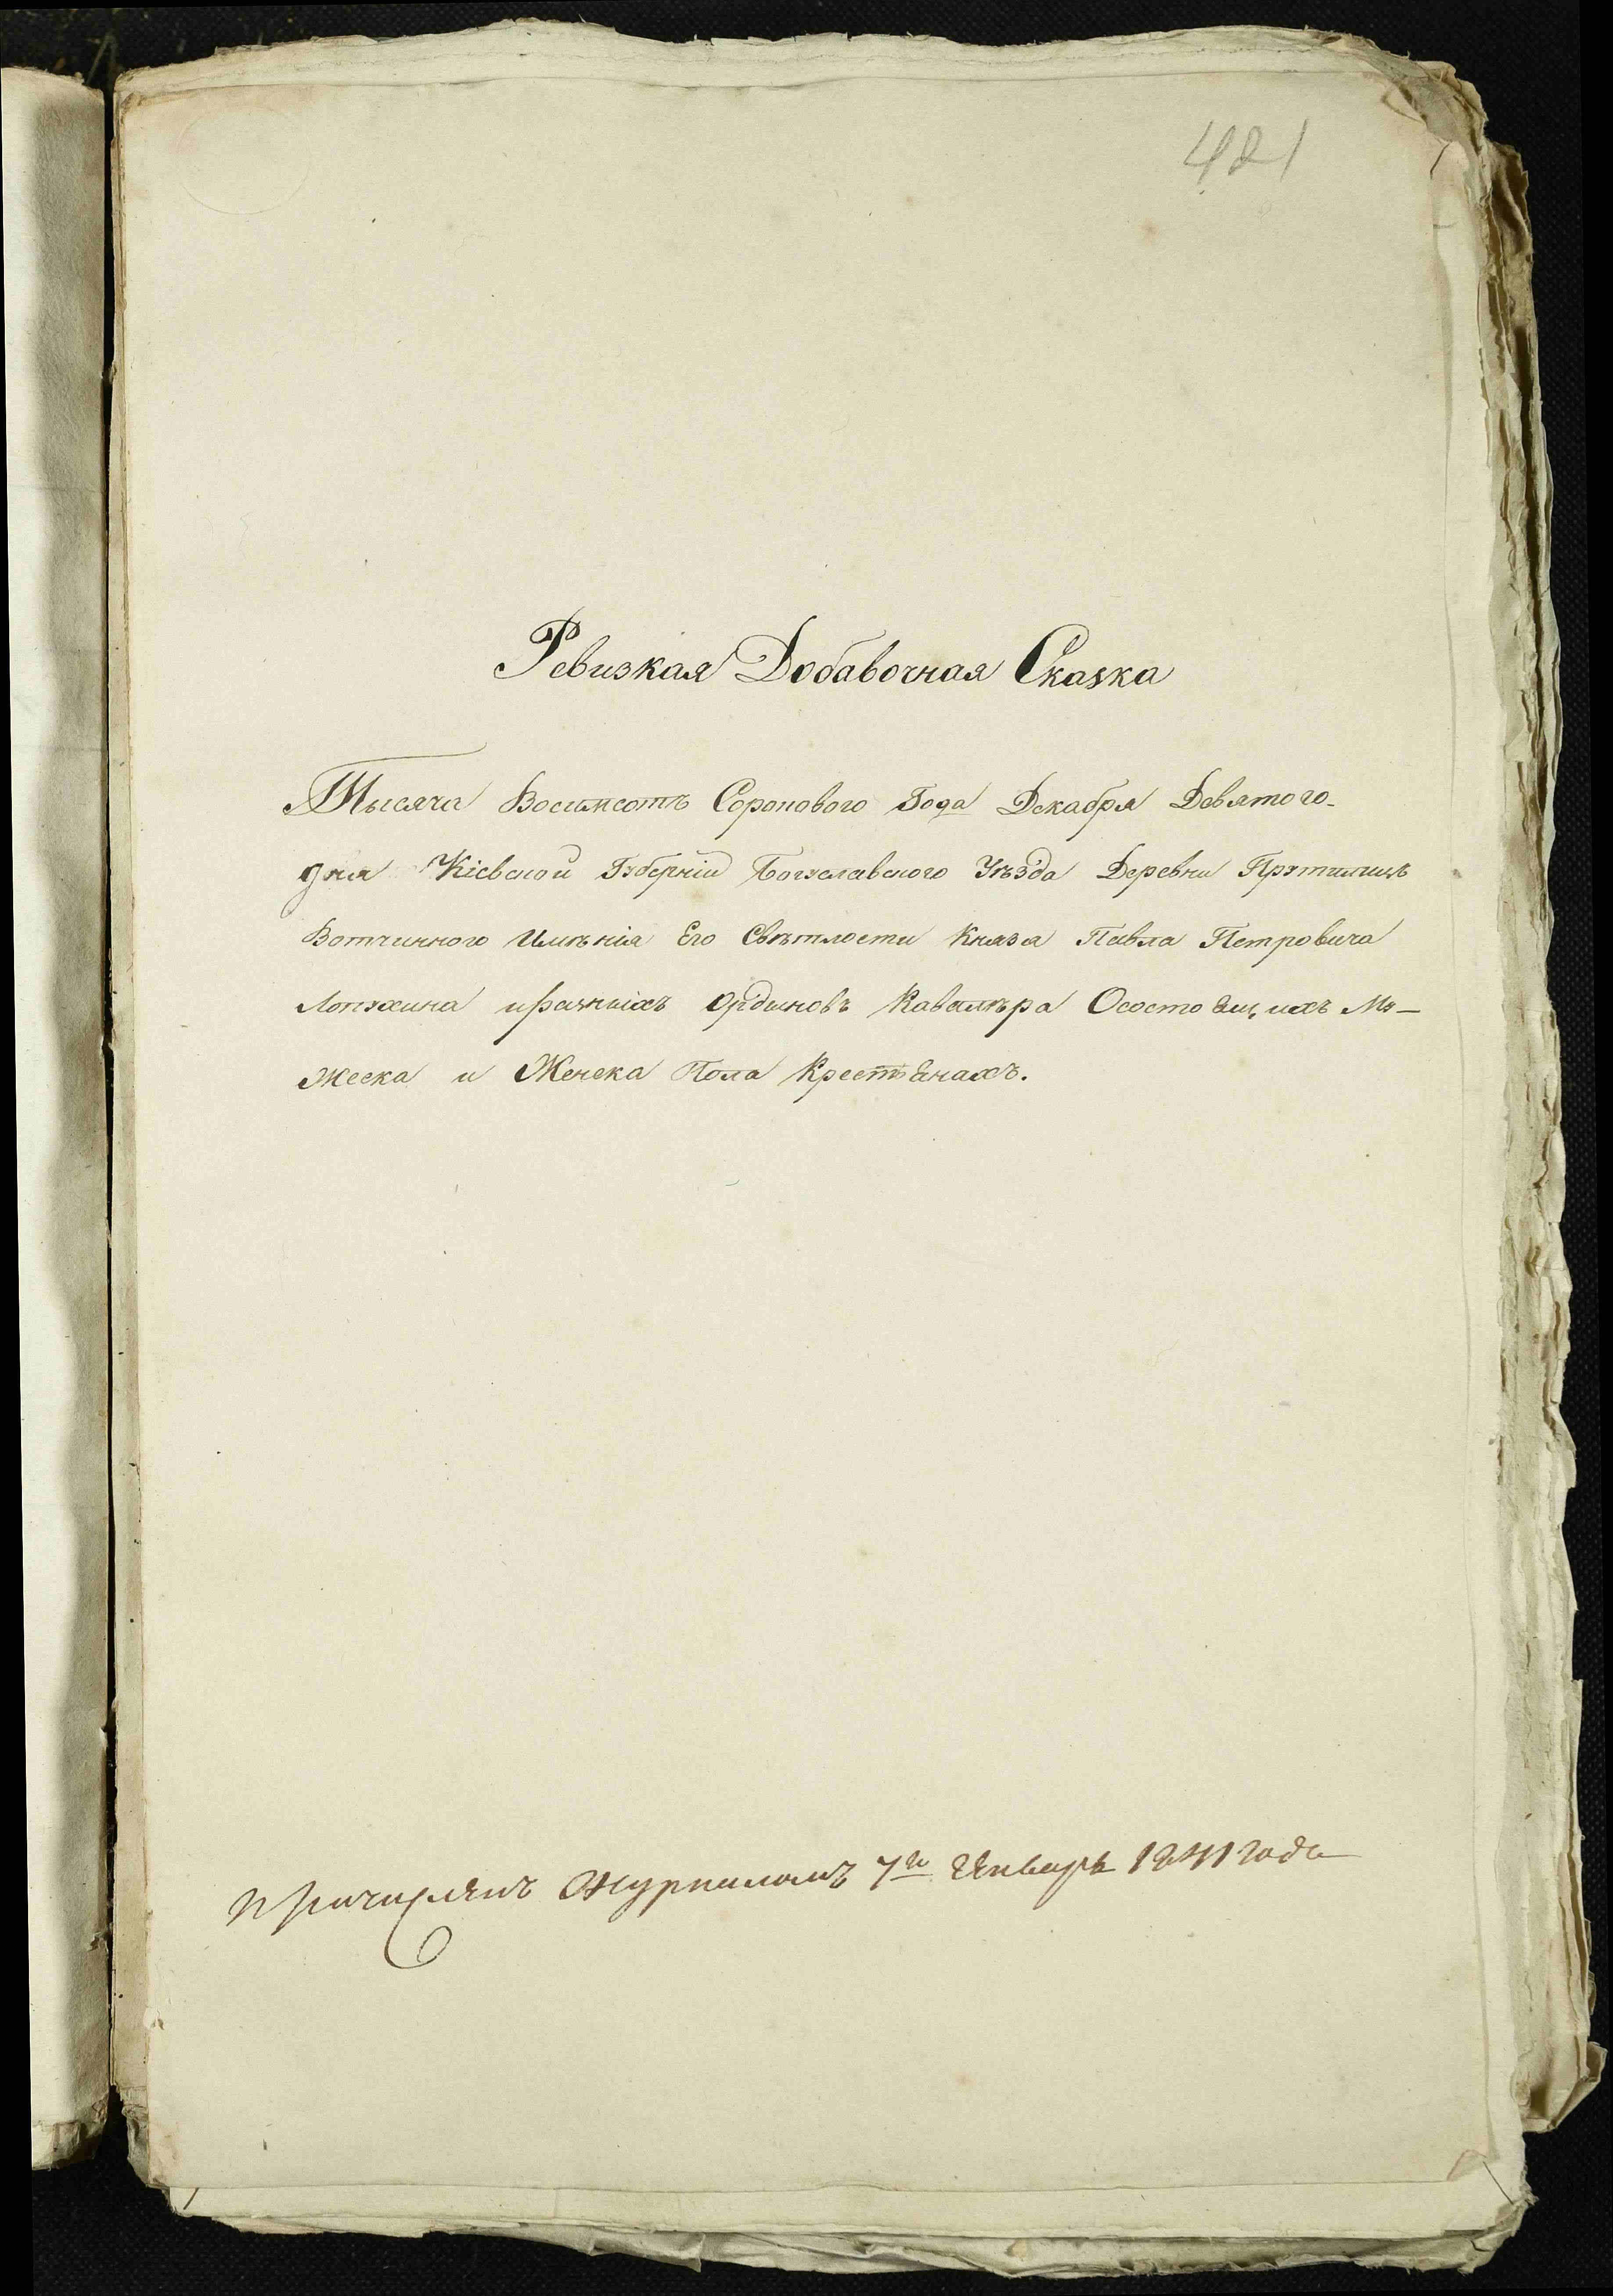 421
Ревизкая Добавочная Сказка
Тысяча Восимсотъ Сороковаго Года Декабря Девятого
дня Кіевской Губерніи Богуславского Уѣзда Деревни
Вотчинного Имѣнія Его Свѣтлости Князя Павла Петровича
Лопухина иразныхъ Ордыновъ Кавалѣра Осостоящихъ Му-
жеска и Женска Пола Крестьянахъ.
Причислены Журналомъ 7го Января 1841 года